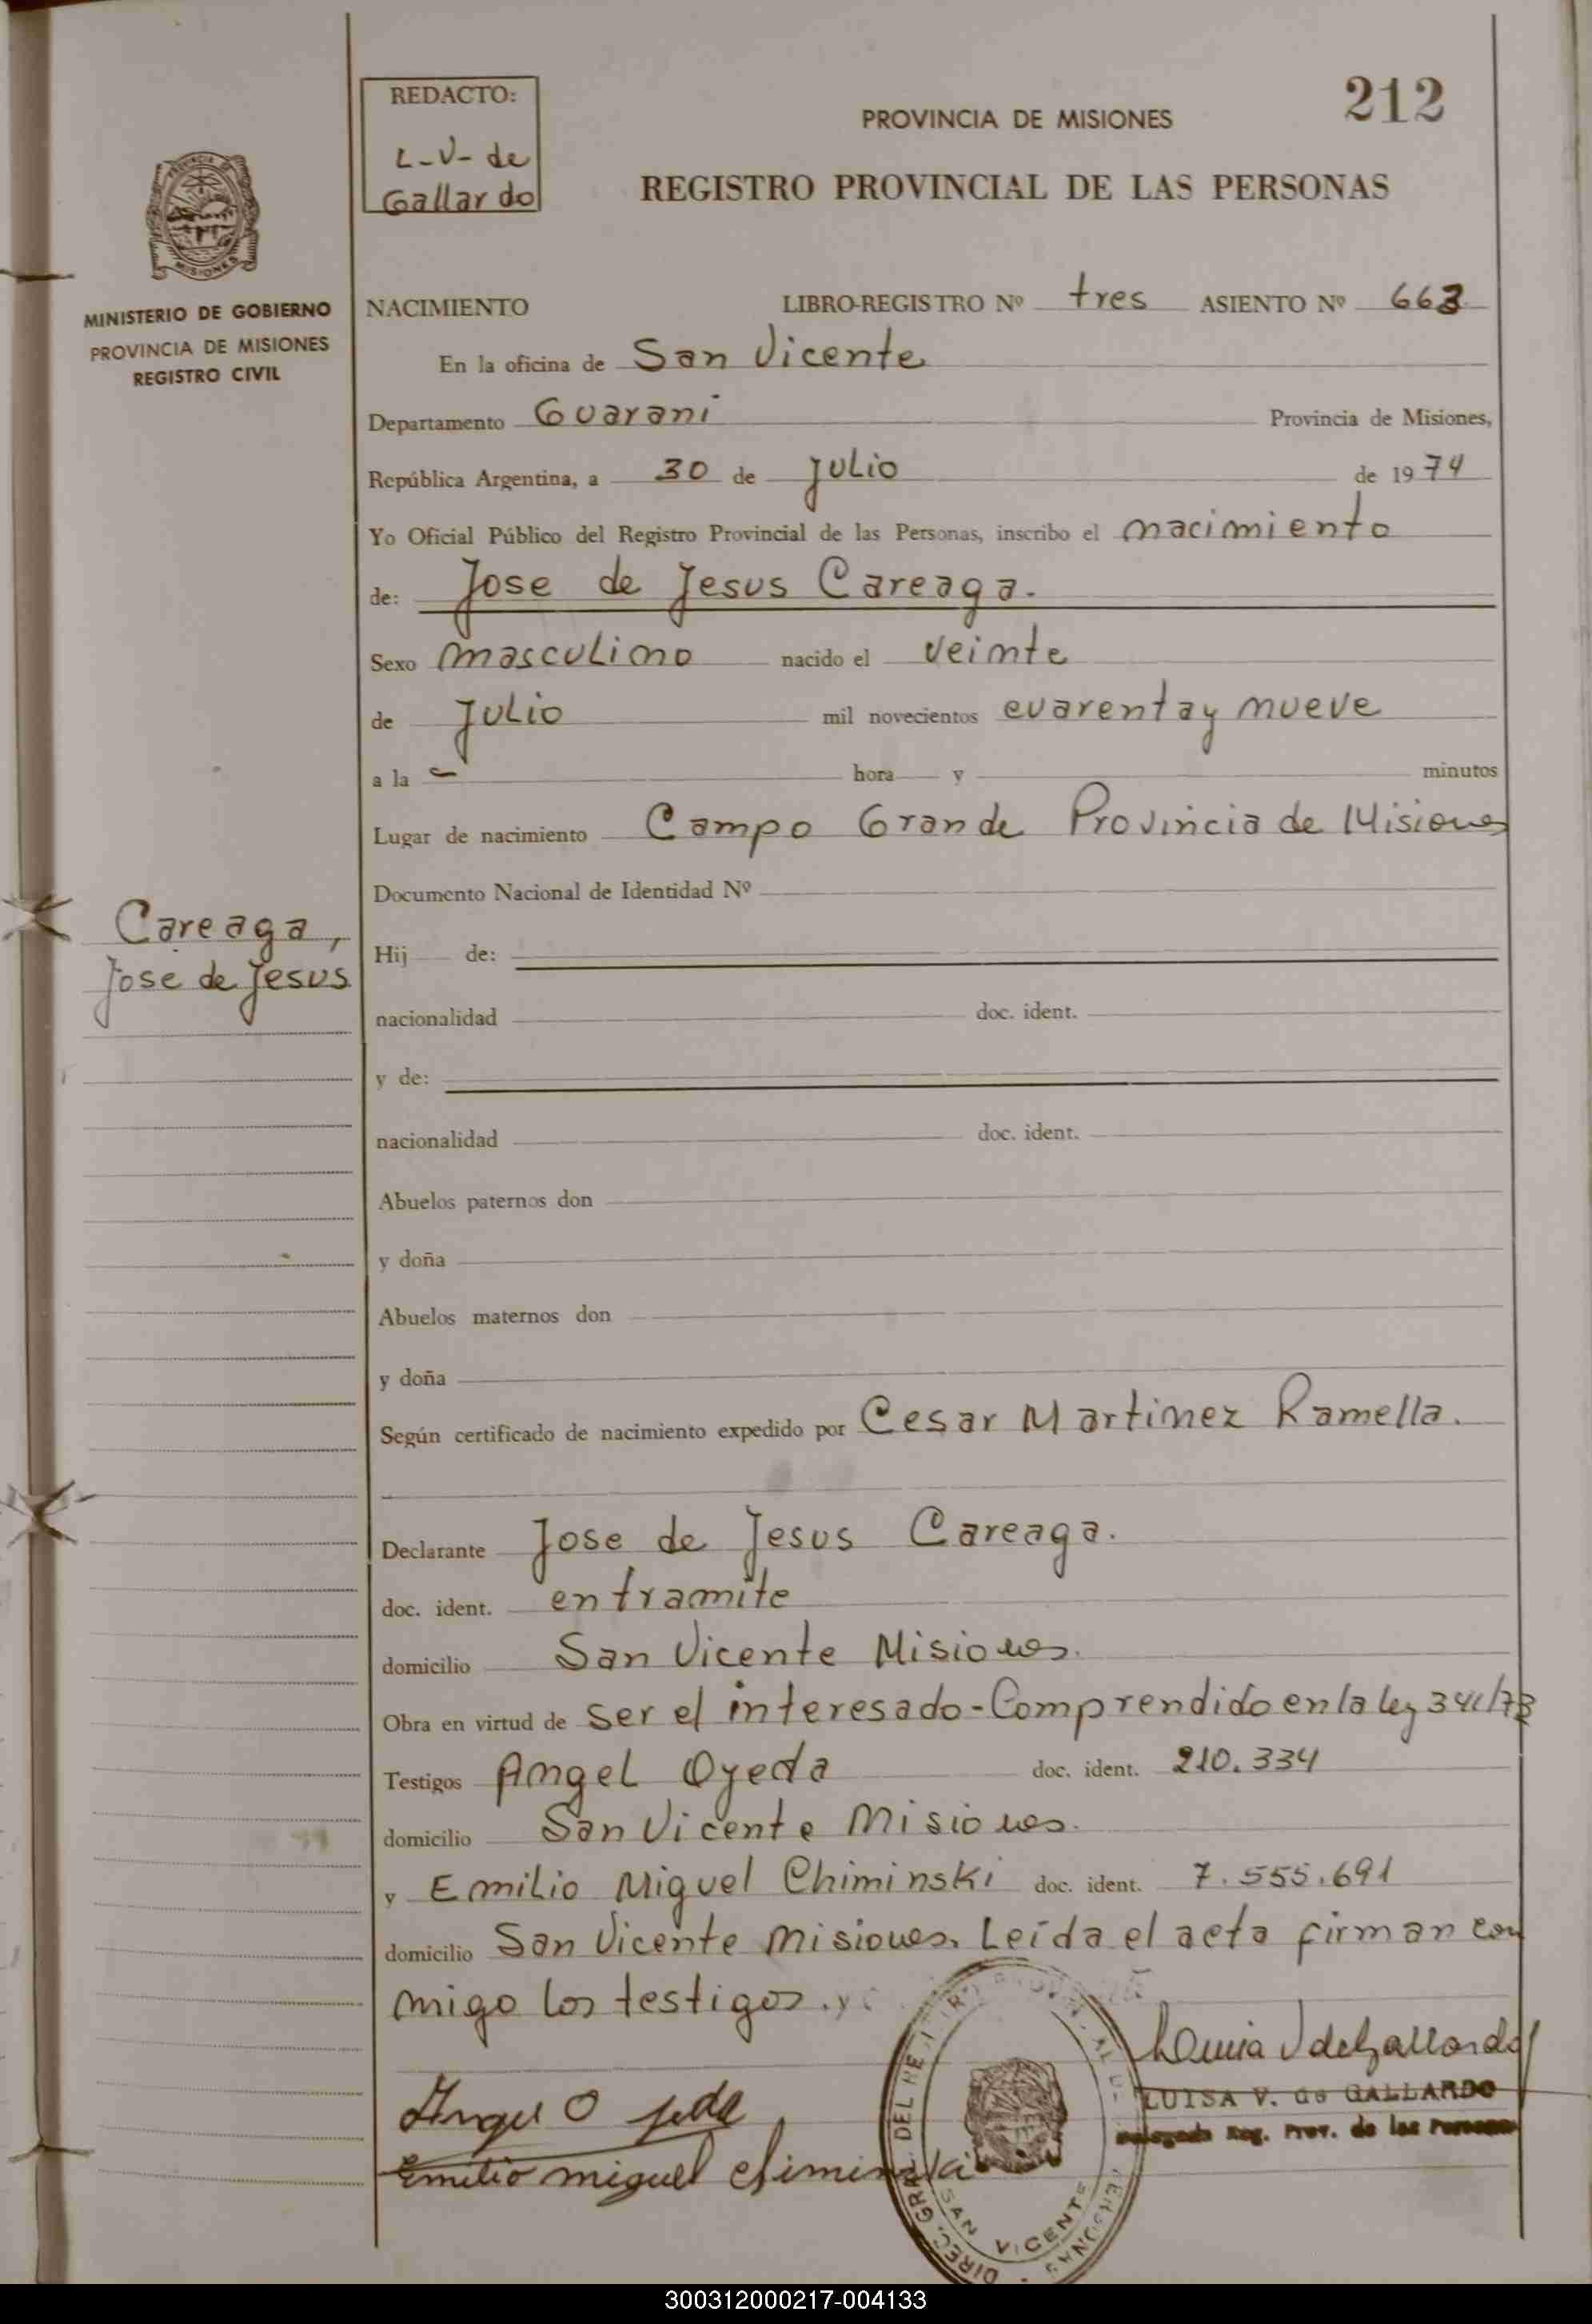 212
REDACTO:
L-V- de
Gallardo
PROVINCIA DE MISIONES
REGISTRO PROVINCIAL DE LAS PERSONAS
MINISTERIO DE GOBIERNO
PROVINCIA DE MISIONES
REGISTRO CIVIL
NACIMIENTO LIBRO-REGISTRO Nº tres ASIENTO Nº 663
En la oficina de San Vicente
Departamento Guarani Provincia de Misiones,
República Argentina, a 30 de Julio de 1974
Yo Oficial Público del Registro Provincial de las Personas, inscribo el nacimiento
de: Jose de Jesus Careaga.
Sexo masculino nacido el veinte
de Julio mil novecientos cuarenta y nueve
a la - hora y minutos
Lugar de nacimiento Campo Grande Provincia de Misiones
Documento Nacional de Identidad Nº
Careaga,
Jose de Jesus
Hij de:
nacionalidad doc. ident.
y de:
nacionalidad doc. ident.
Abuelos paternos don
y doña
Abuelos maternos don
y doña
Según certificado de nacimiento expedido por Cesar Martinez Ramella.
Declarante Jose de Jesus Careaga.
doc. ident. en tramite
domicilio San Vicente Misiones.
Obra en virtud de ser el interesado-Comprendido en la ley 341/73
Testigos Angel Ojeda doc. ident. 210.334
domicilio San Vicente Misiones.
y Emilio Miguel Chiminski doc. ident. 7.555.691
domicilio San Vicente Misiones. Leída el acta firman con
migo los testigos.
Angel Ojeda
Emilio miguel chiminski
Luisa V de Gallardo
LUISA V. de GALLARDO
Delegada Reg. Prov. de las Personas
DIREC. GRAL. DEL REGISTRO PROVINCIAL DE PERSONAS
SAN VICENTE
300312000217-004133